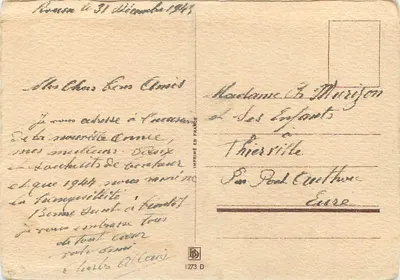 Rouen le 31 Décembre 1943
Mes Chers bons Amis
Je vous adresse à l'occasion
de la nouvelle année
mes meilleurs vœux
et souhaits de bonheur
et que 1944 nous ramène
la tranquillité
Bonne Santé à bientôt
je vous embrasse tous
de tout cœur
votre ami
IMPRIMÉ EN FRANCE
1273 D
Madame Ch. Murizon
et Ses Enfants
à
Thierville
Par Pont Authou
Eure